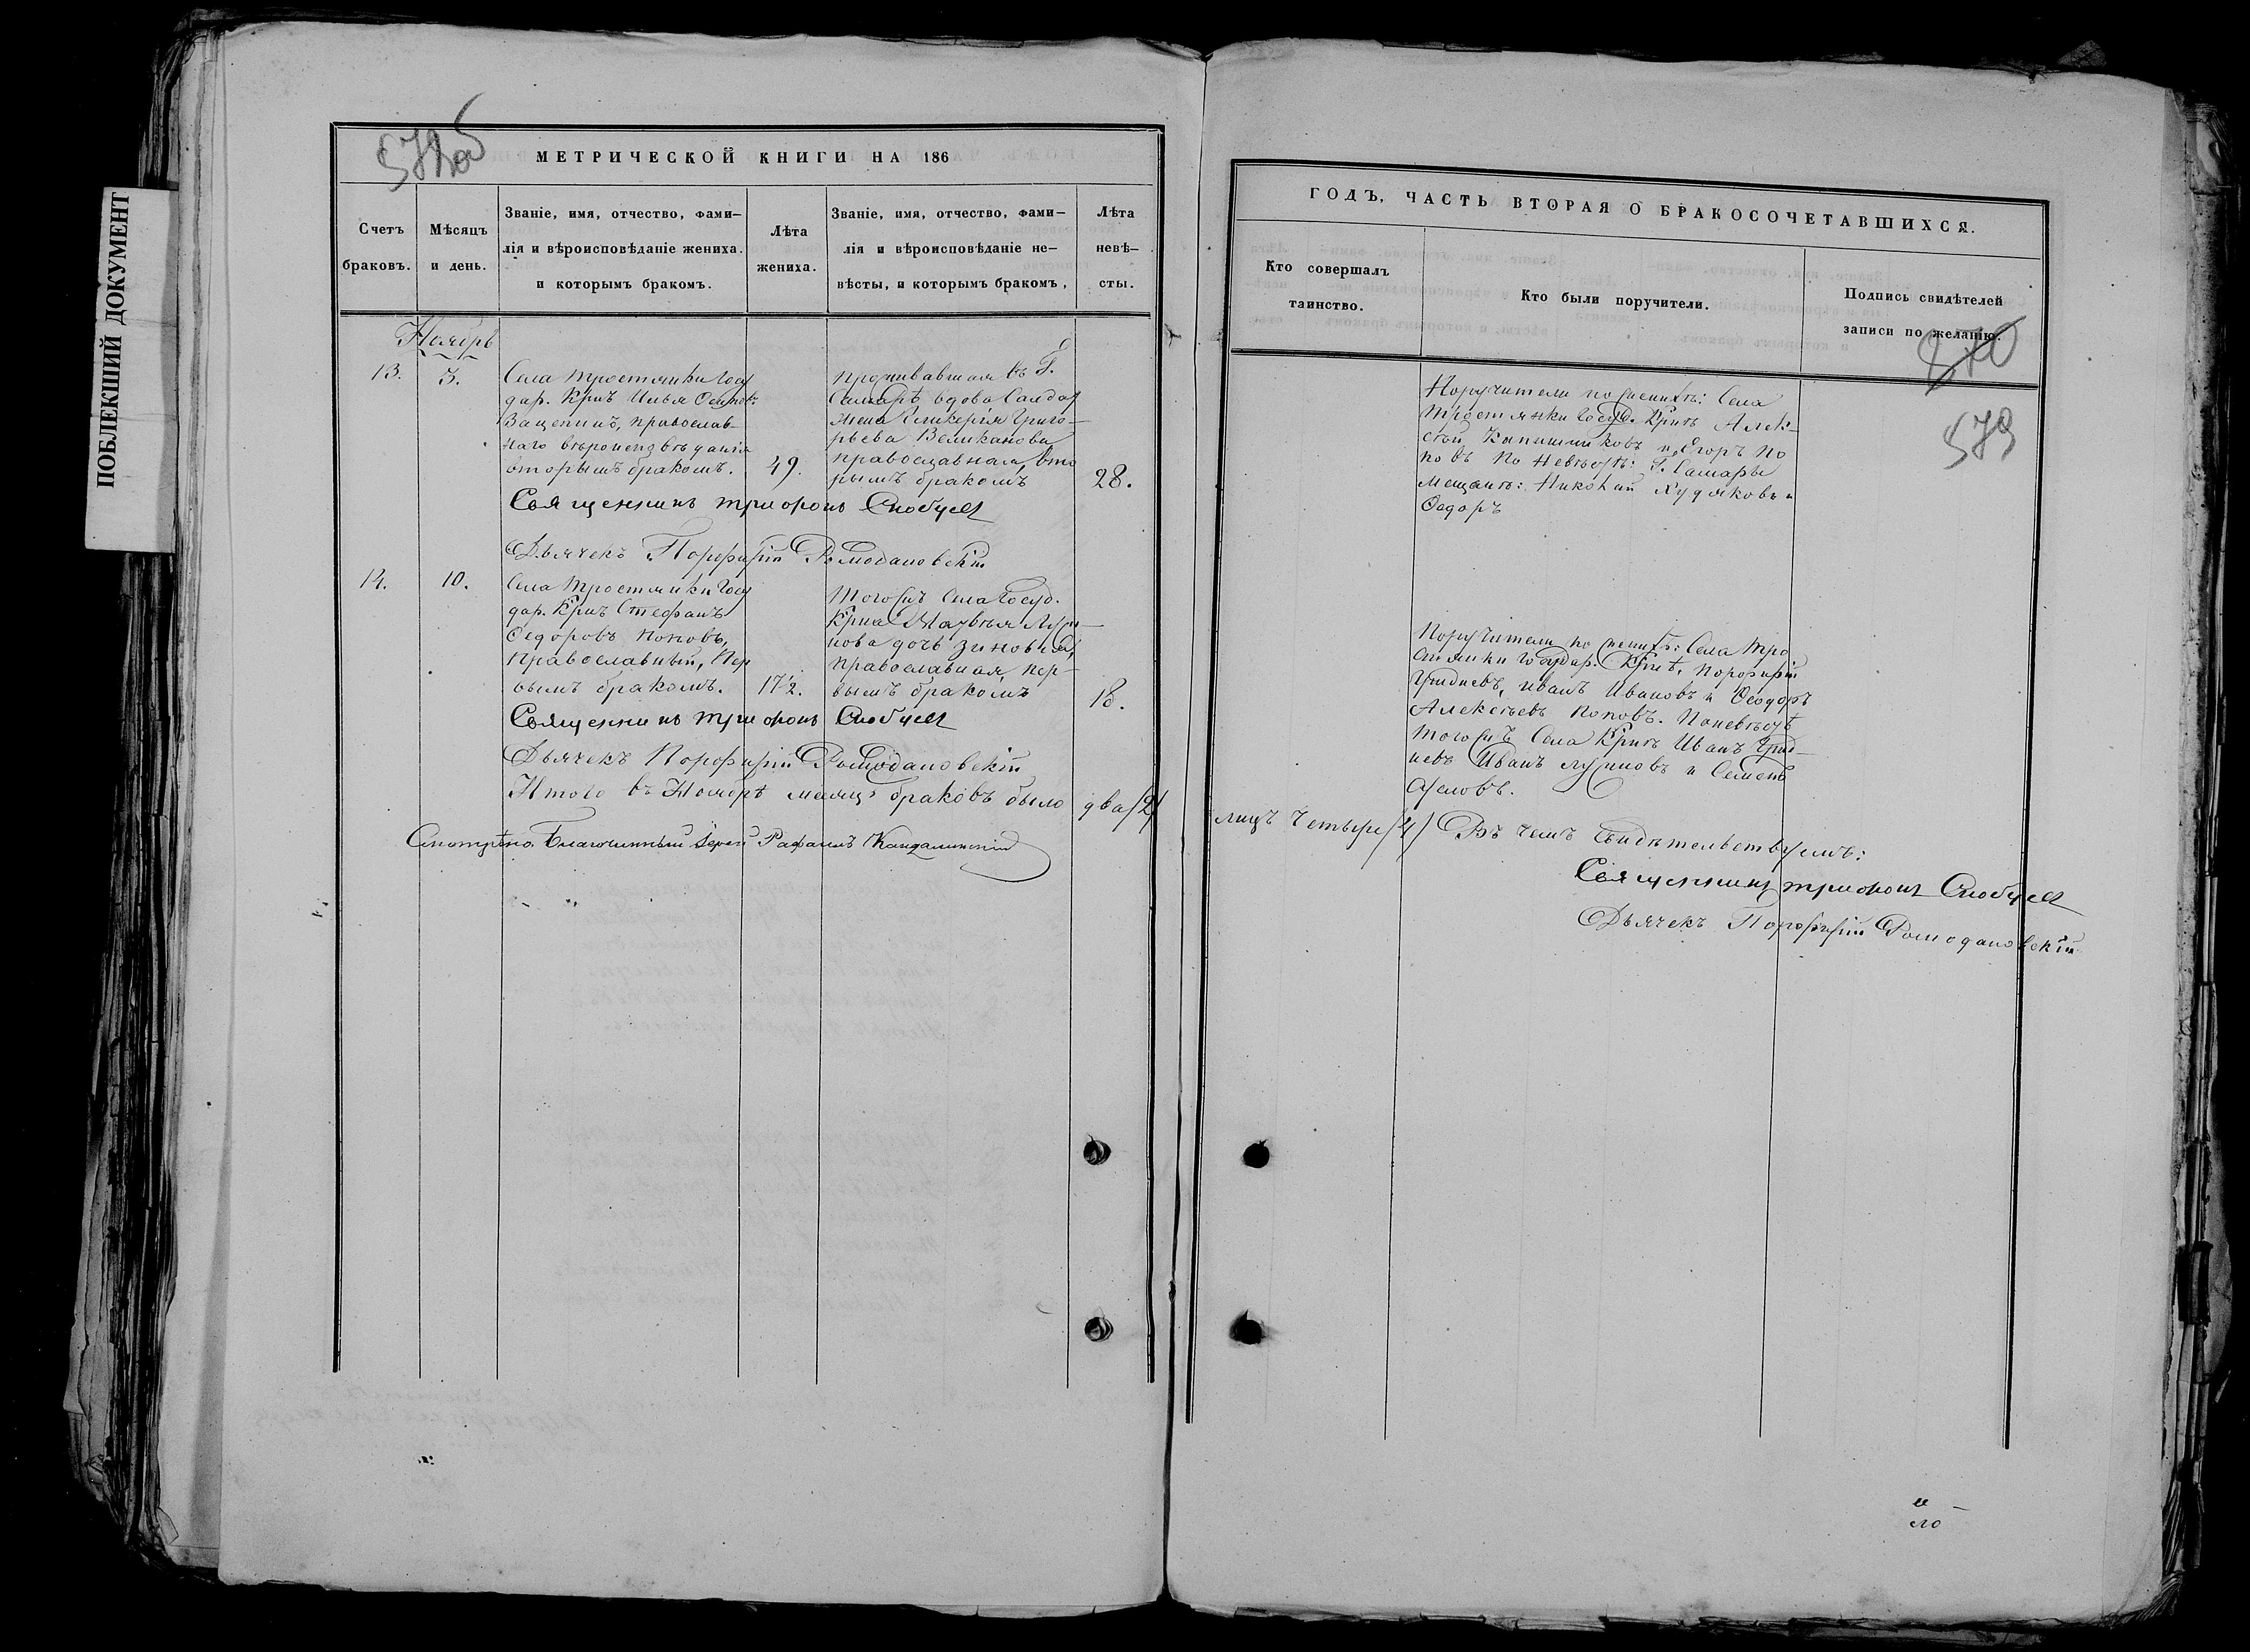 ПОБЛЕКШИЙ ДОКУМЕНТ
МЕТРИЧЕСКОЙ КНИГИ НА 186
Счетъ браковъ.
Мѣсяцъ и день.
Званіе, имя, отчество, фами-
лія и вѣроисповѣданіе жениха.
и которымъ бракомъ.
Лѣта жениха.
Званіе, имя, отчество, фами-
лія и вѣроисповѣданіе не-
вѣсты, и которымъ бракомъ,
Лѣта
невѣ-
сты.
Ноябрь
13.
5.
Села Тростянки Госу
дар. Крнъ Илья Осиповъ
Ващенинъ, православ-
наго вѣроисповѣданія
вторымъ бракомъ.
49.
проживавшая въ Г.
Самарѣ вдова Салдат
жена Гликерія Григо-
рьева Великанова
православная, вто
рымъ бракомъ
28.
Священникъ Трифонъ
Дьячекъ Порфирій Ромодановскій
14.
10.
Села Тростянки Госу
дар. Крнъ Стефанъ
Ѳедоровъ Поповъ,
православный, пер
вымъ бракомъ.
17½.
Тогожъ Села Госуд.
Крна Матвѣя Лури-
нова дочь Зиновія,
православная пер-
вымъ бракомъ
18.
Священникъ Трифонъ
Дьячекъ Порфирій Ромодановскій
Итого въ Ноябрѣ месяцѣ браковъ было два /2/
Смотрѣно. Благочинный Іерей Рафаилъ Кандалинскій
ГОДЪ, ЧАСТЬ ВТОРАЯ О БРАКОСОЧЕТАВШИХСЯ.
Кто совершалъ
таинство.
Кто были поручители.
Подпись свидѣтелей
записи по желанію.
579
Поручители по женихѣ: Села
Тростянки Госуд. Крнъ Алек-
сѣй Капишниковъ и Егоръ По
повъ по Невѣстѣ: Г. Самары
Мещанѣ: Николай Худяковъ и
Ѳедоръ
Поручители по женихѣ: Села Тро
стянки Государ. Крнѣ, Порфирій
Гридневъ, Иванъ Ивановъ и Ѳеодоръ
Алексѣевъ Поповъ. По невѣстѣ
Тогожъ Села Крнъ Иванъ Грид-
невъ Иванъ Луриновъ и Семенъ
лицъ Четыре /4/ Въ чемъ Свидѣтельствуемъ:
Священникъ Трифонъ
Дьячекъ Порфирій Ромодановскій